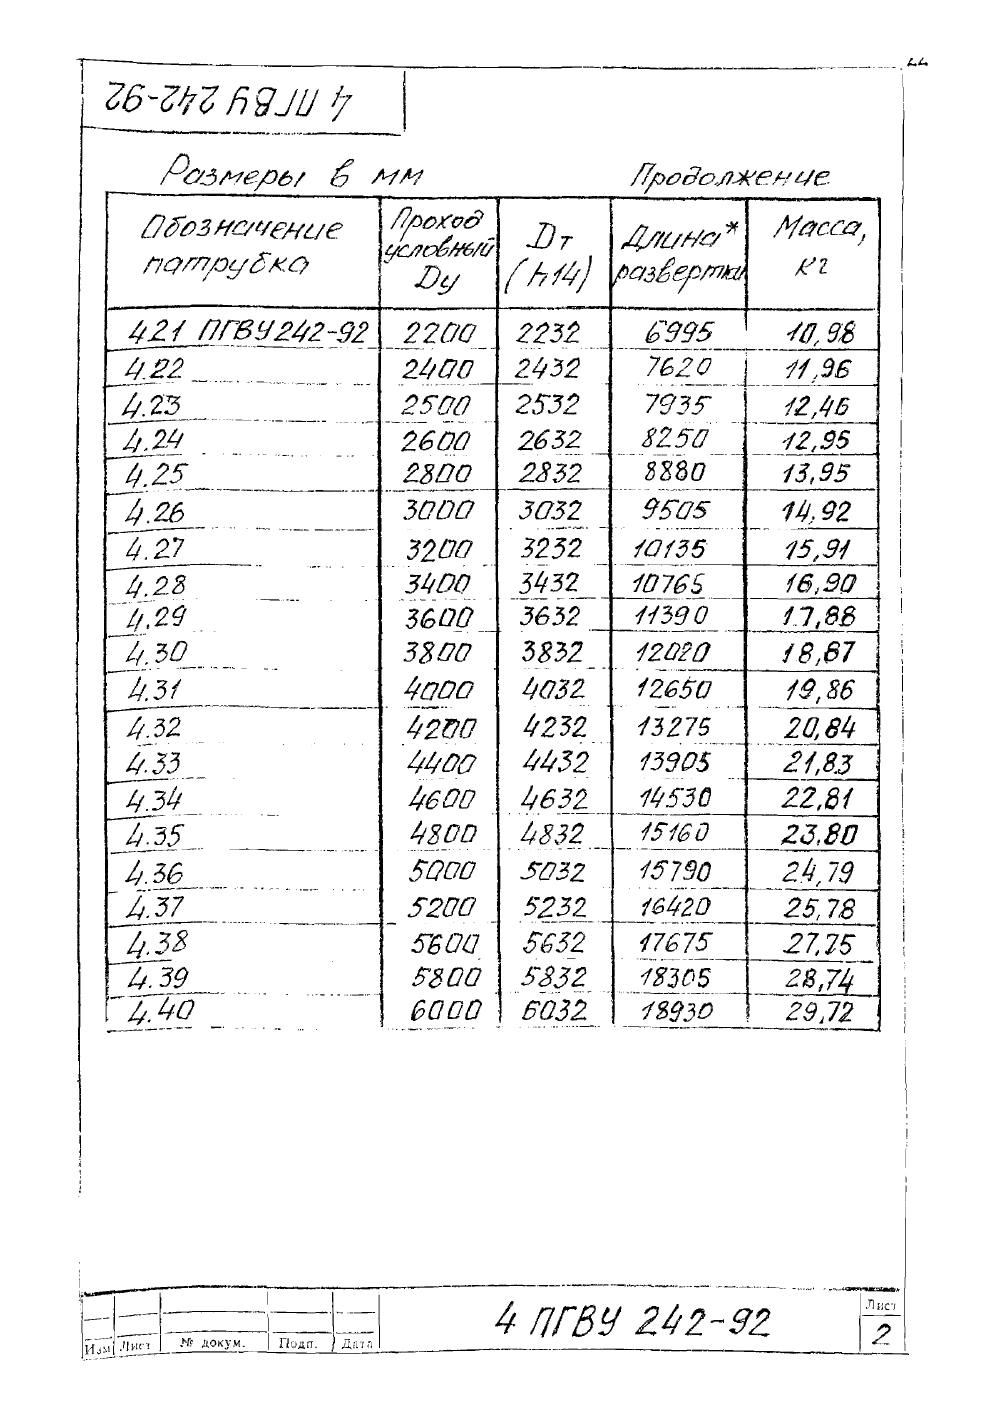 4 ПГВУ 242-92
Размеры в мм Продолжение
Обозначение патрубка | Проход условный Dу | Dт (h14) | Длина* развертки | Масса, кг
421 ПГВУ242-92 2200 2232 6995 10,98
4.22 2400 2432 7620 11,96
4.23 2500 2532 7935 12,46
4.24 2600 2632 8250 12,95
4.25 2800 2832 8880 13,95
4.26 3000 3032 9505 14,92
4.27 3200 3232 10135 15,91
4.28 3400 3432 10765 16,90
4.29 3600 3632 11390 17,88
4.30 3800 3832 12020 18,87
4.31 4000 4032 12650 19,86
4.32 4200 4232 13275 20,84
4.33 4400 4432 13905 21,83
4.34 4600 4632 14530 22,81
4.35 4800 4832 15160 23,80
4.36 5000 5032 15790 24,79
4.37 5200 5232 16420 25,78
4.38 5600 5632 17675 27,75
4.39 5800 5832 18305 28,74
4.40 6000 6032 18930 29,72
Изм Лист № докум. Подп. Дата
4 ПГВУ 242-92
Лист
2